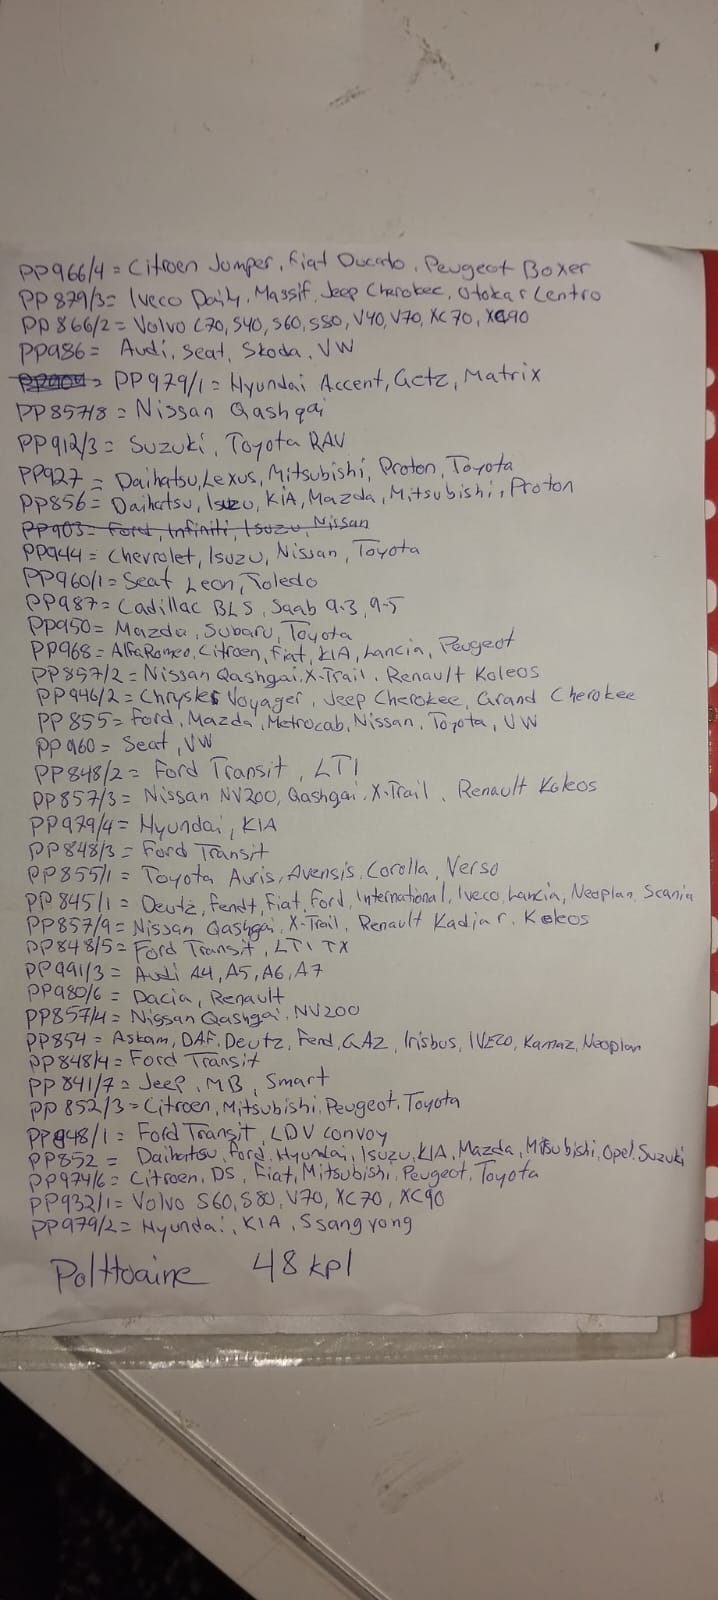 PP966/4 = Citroen Jumper, Fiat Ducato, Peugeot Boxer
PP 879/3 = Iveco Daily, Massif, Jeep Cherokee, Otokar Centro
PP 866/2 = Volvo C70, S40, S60, S80, V40, V70, XC70, XC90
PP986 = Audi, Seat, Skoda, VW
PP979/1 = Hyundai Accent, Getz, Matrix
PP857/8 = Nissan Qashqai
PP912/3 = Suzuki, Toyota RAV
PP927 = Daihatsu, Lexus, Mitsubishi, Proton, Toyota
PP856 = Daihatsu, Isuzu, KIA, Mazda, Mitsubishi, Proton
PP903 = Ford, Infiniti, Isuzu, Nissan
PP944 = Chevrolet, Isuzu, Nissan, Toyota
PP960/1 = Seat Leon, Toledo
PP987 = Cadillac BLS, Saab 9-3, 9-5
PP950 = Mazda, Subaru, Toyota
PP968 = Alfa Romeo, Citroen, Fiat, KIA, Lancia, Peugeot
PP857/2 = Nissan Qashgai, X-Trail, Renault Koleos
PP946/2 = Chrysler Voyager, Jeep Cherokee, Grand Cherokee
PP 855 = Ford, Mazda, Metrocab, Nissan, Toyota, VW
PP 960 = Seat, VW
PP 848/2 = Ford Transit, LTI
PP 857/3 = Nissan NV200, Qashgai, X-Trail, Renault Koleos
PP979/4 = Hyundai, KIA
PP 848/3 = Ford Transit
PP 855/1 = Toyota Auris, Avensis, Corolla, Verso
PP 845/1 = Deutz, Fendt, Fiat, Ford, International, Iveco, Lancia, Neoplan, Scania
PP857/9 = Nissan Qashgai, X-Trail, Renault Kadjar, Koleos
PP848/5 = Ford Transit, LTI TX
PP991/3 = Audi A4, A5, A6, A7
PP980/6 = Dacia, Renault
PP857/4 = Nissan Qashqai, NV200
PP854 = Askam, DAF, Deutz, Fend, GAZ, Irisbus, IVECO, Kamaz, Neoplan
PP 848/4 = Ford Transit
PP 841/7 = Jeep, MB, Smart
PP 852/3 = Citroen, Mitsubishi, Peugeot, Toyota
PP848/1 = Ford Transit, LDV convoy
PP 852 = Daihatsu, Ford, Hyundai, Isuzu, KIA, Mazda, Mitsubishi, Opel, Suzuki
PP974/6 = Citroen, DS, Fiat, Mitsubishi, Peugeot, Toyota
PP932/1 = Volvo S60, S80, V70, XC70, XC90
PP979/2 = Hyundai, KIA, Ssangyong
Polttoaine 48 kpl